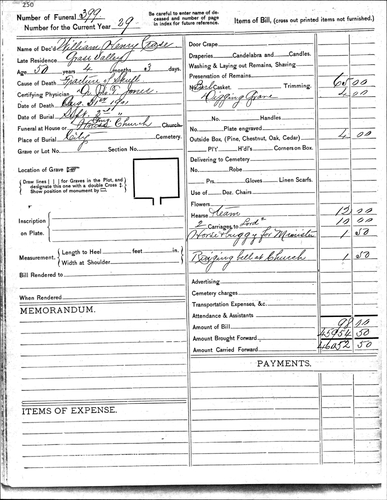 250
Number of Funeral 399
Number for the Current Year 29
Be careful to enter number of deceased and number of page in index for future reference.
Items of Bill, (cross out printed items not furnished.)
Name of Dec'd William Henry
Late Residence Grass Valley
Age 50 years 4 months 3 days.
Cause of Death Fracture of Skull
Certifying Physician Dr. Jones
Date of Death Aug 31st 1901
Date of Burial Sept. 2nd
Funeral at House or Church Church.
Place of Burial City Cemetery.
Grave or Lot No. Section No.
Location of Grave
Draw lines for Graves in the Plot, and designate this one with a double Cross
Show position of monument by
Inscription on Plate.
Measurement, Length to Heel feet in.
Width at Shoulder
Bill Rendered to
When Rendered
MEMORANDUM.
ITEMS OF EXPENSE.
Door Crape
Draperies, Candelabra and Candles.
Washing & Laying out Remains, Shaving
Presentation of Remains
No. Casket. Trimming. 65 00
Digging Grave 4 00
No. Handles
Plate engraved
Outside Box, (Pine, Chestnut, Oak, Cedar) 4 00
P'I'Y H'd'l's Corners on Box.
Delivering to Cemetery
No. Robe
Prs. Gloves Linen Scarfs.
Use of Doz. Chairs
Flowers
Hearse Team 12 00
2 Carriages to 10 00
Horse & buggy for Minister 1 50
Ringing bell at Church 1 50
Advertising
Cemetery charges
Transportation Expenses, &c.
Attendance & Assistants
Amount of Bill 98 00
Amount Brought Forward 45954 50
Amount Carried Forward 46052 50
PAYMENTS.